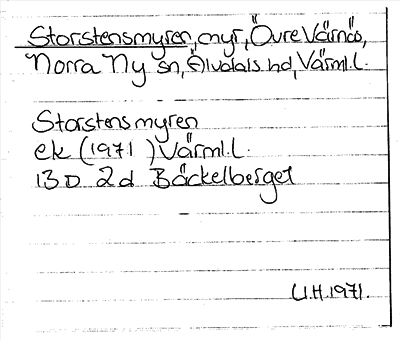 Storstensmyren, myr, Övre Värnäs,
Norra Ny sn, Älvdals hd, Värml.l.
Storstensmyren
ek (1971) Värml.l.
13D 2d Bäckelberget
U.H.1971.